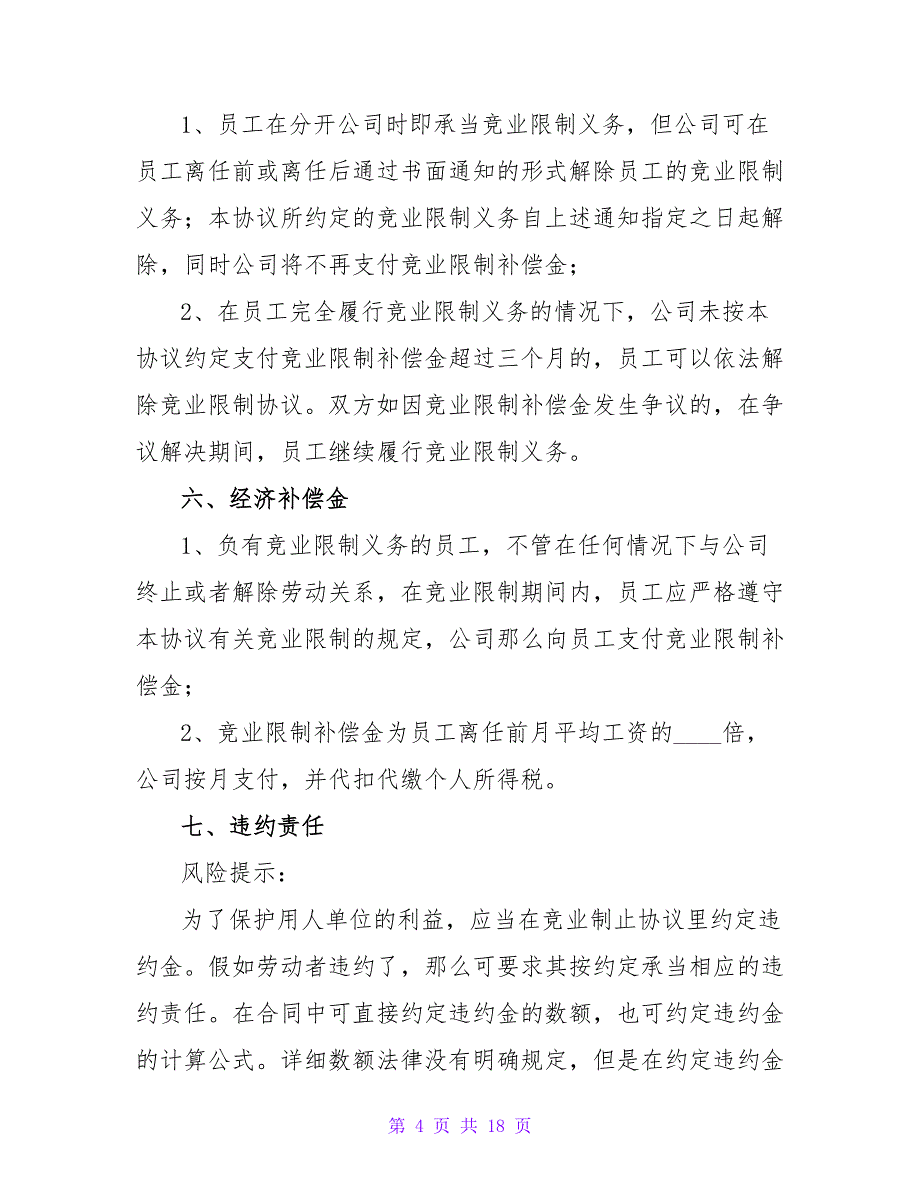 1、员工在分开公司时即承当竞业限制义务，但公司可在
员工离任前或离任后通过书面通知的形式解除员工的竞业限制
义务；本协议所约定的竞业限制义务自上述通知指定之日起解
除，同时公司将不再支付竞业限制补偿金；
2、在员工完全履行竞业限制义务的情况下，公司未按本
协议约定支付竞业限制补偿金超过三个月的，员工可以依法解
除竞业限制协议。双方如因竞业限制补偿金发生争议的，在争
议解决期间，员工继续履行竞业限制义务。
六、经济补偿金
1、负有竞业限制义务的员工，不管在任何情况下与公司
终止或者解除劳动关系，在竞业限制期间内，员工应严格遵守
本协议有关竞业限制的规定，公司那么向员工支付竞业限制补
偿金；
2、竞业限制补偿金为员工离任前月平均工资的____倍，
公司按月支付，并代扣代缴个人所得税。
七、违约责任
风险提示：
为了保护用人单位的利益，应当在竞业制止协议里约定违
约金。假如劳动者违约了，那么可要求其按约定承当相应的违
约责任。在合同中可直接约定违约金的数额，也可约定违约金
的计算公式。详细数额法律没有明确规定，但是在约定违约金
第 4 页 共 18 页